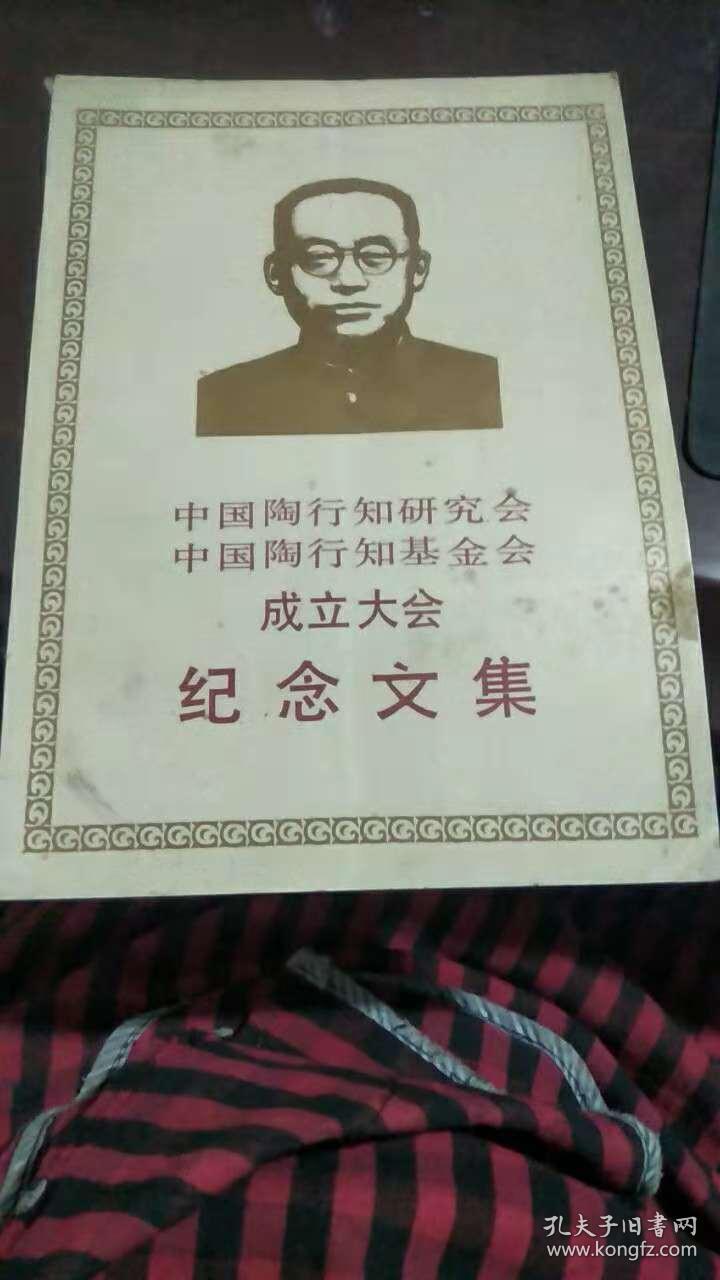 中国陶行知研究会
中国陶行知基金会
成立大会
纪念文集
孔夫子旧書网
www.kongfz.com